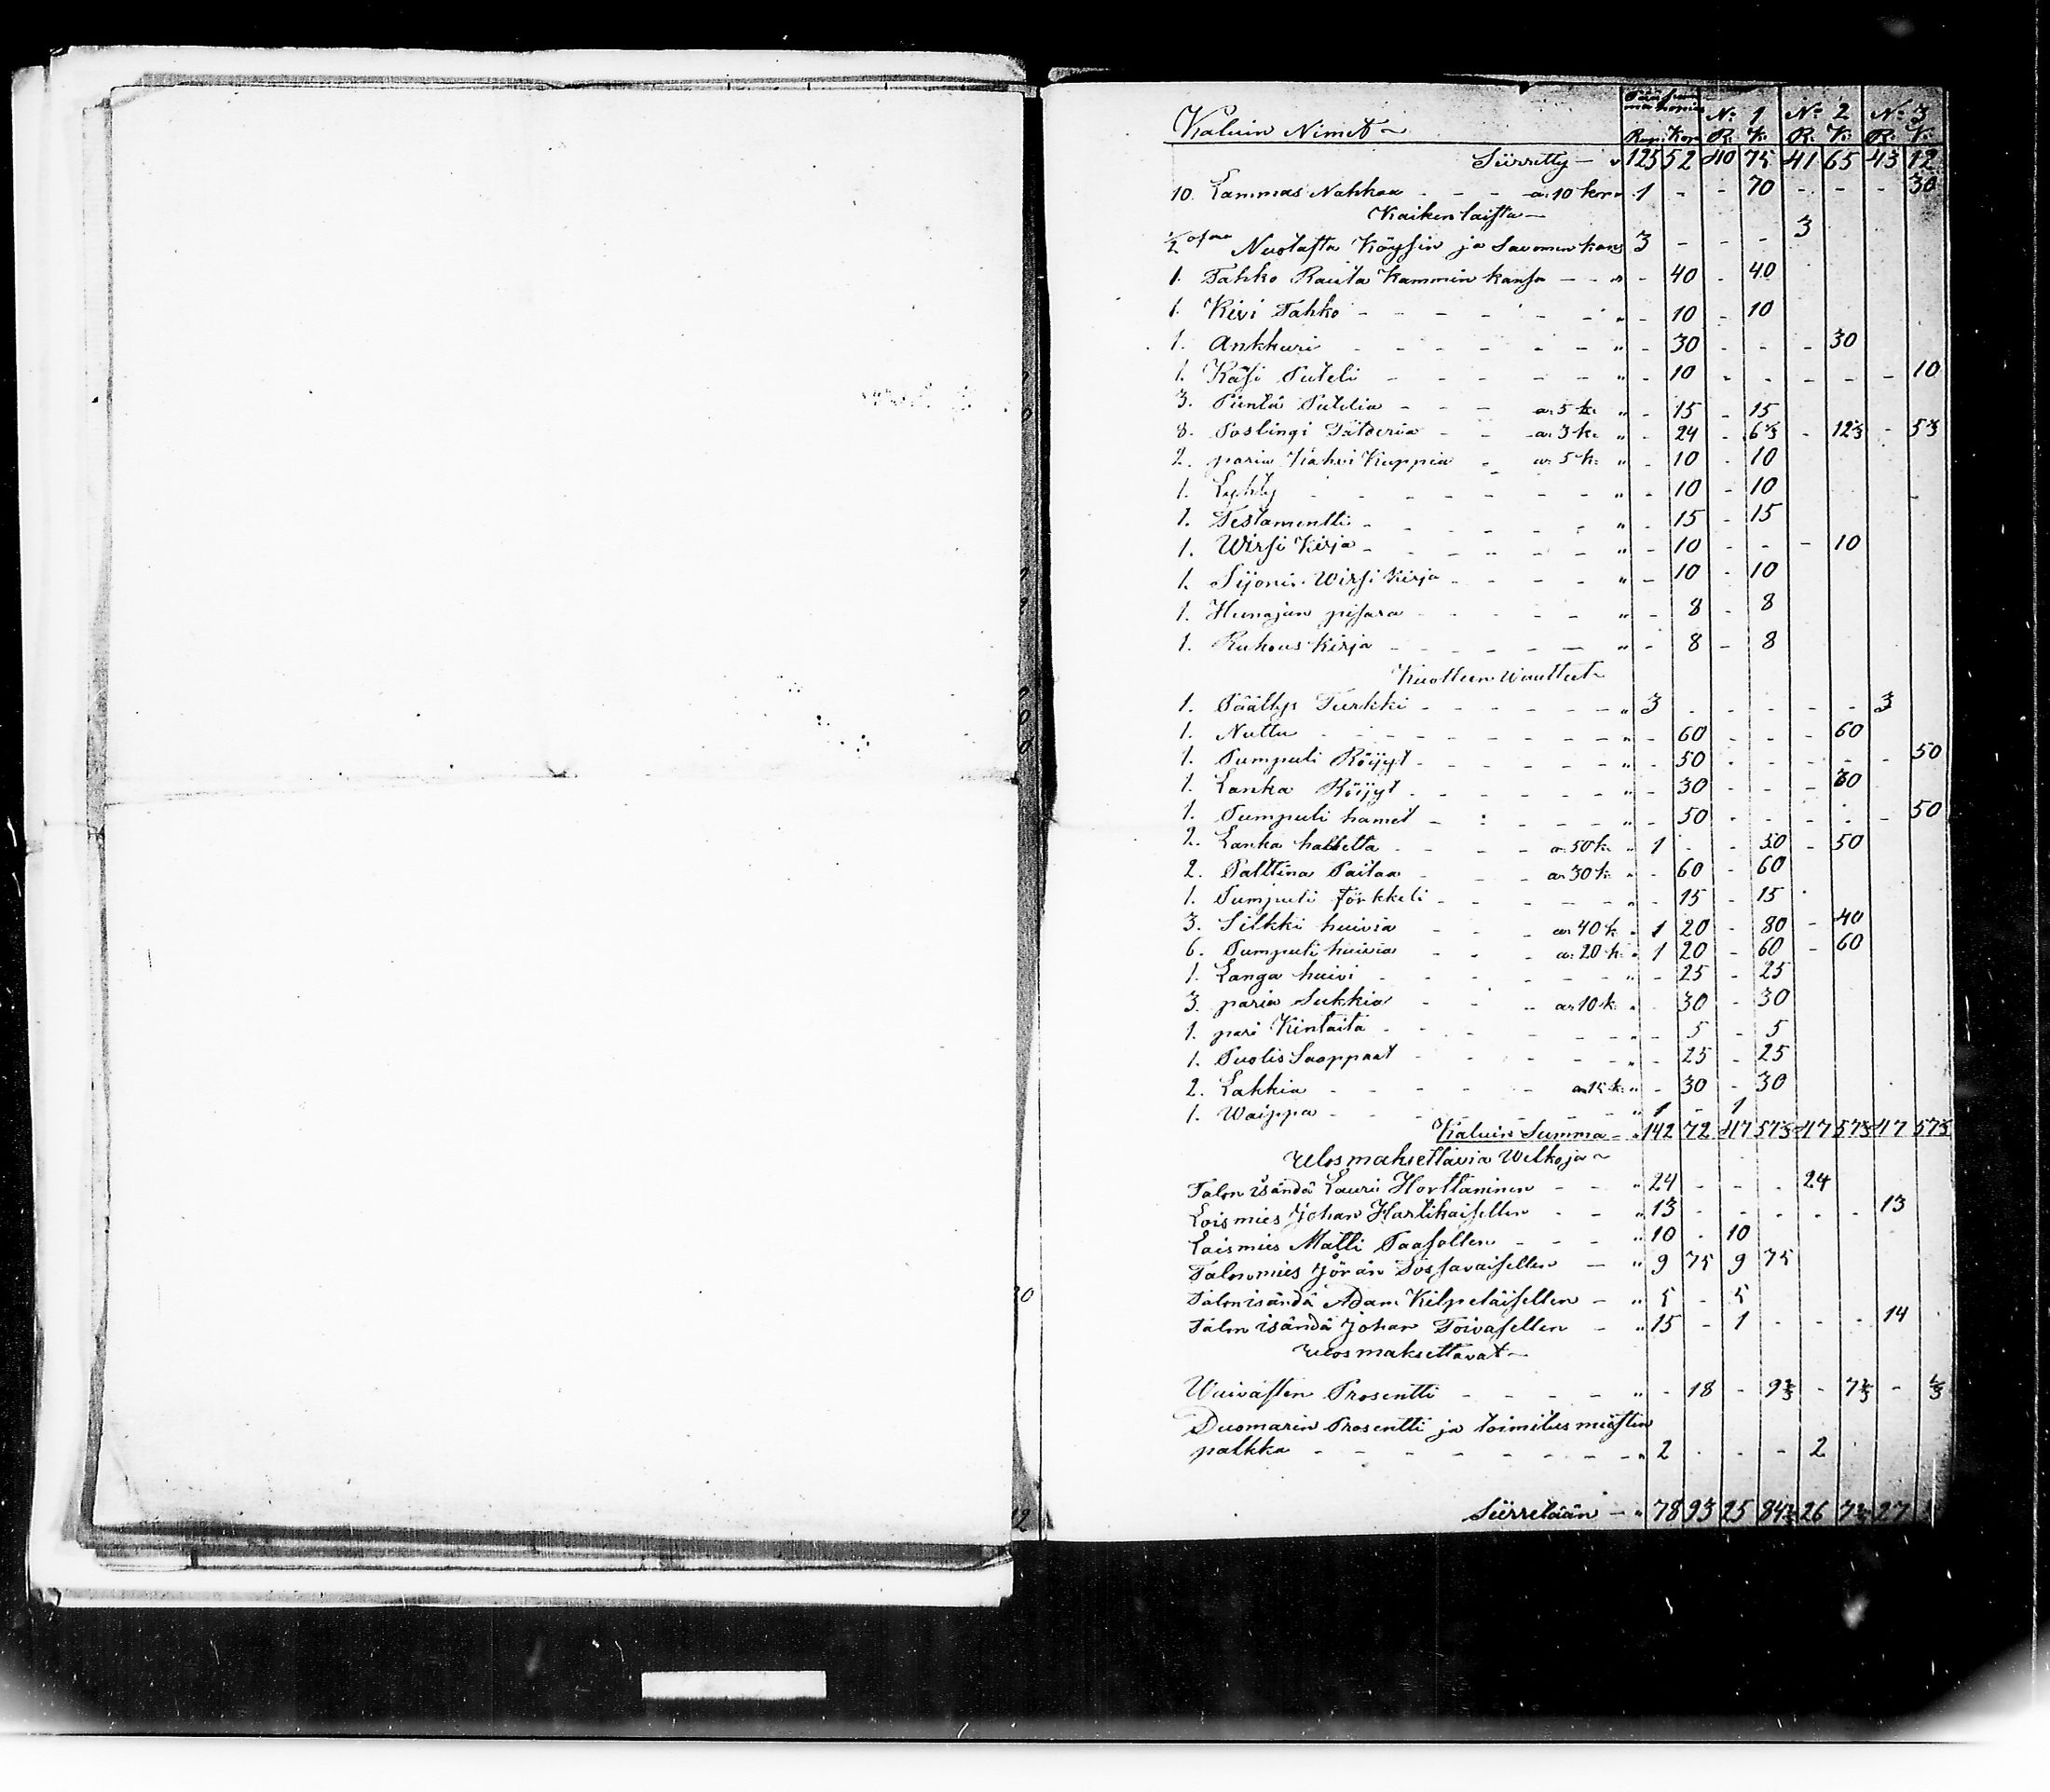 Kaluin Nimet Pääsumma No 1 No 2 No 3
Rup. Kop. R. K. R. K. R. K.
Siirretty 125 52 40 75 41 65 43 12
10. Lammas Nahkaa - - - a. 10 kop. 1 - - 70 - - - 30
Kaikenlaista
1/2 osaa Nuotasta Köysin ja Savomen kans 3 - - - 3
1. Tahko Rauta Kammin kansa - - - 40 - 40
1. Kivi Tahko - - 10 - 10
1. Ankkuri - - 30 - - - 30
1. Käsi Puteli - - 10 - - - - - 10
3. Pientä Putelia - - - a. 5 k. - 15 - 15
8. Poslingi Tälderiä - - a. 3 k. - 24 - 6 2/3 - 12 2/3 - 5 2/3
2. paria Kahvi Kuppia - a. 5 k. - 10 - 10
1. Lyhty - - 10 - 10
1. Testamentti - - 15 - 15
1. Wirsi Kirja - - 10 - - - 10
1. Sijonin Wirsi Kirja - - 10 - 10
1. Hunajan pisara - - 8 - 8
1. Rukous Kirja - - 8 - 8
Kuolleen Waatteet
1. Päällys Turkki - 3 - - - - - 3
1. Nuttu - - 60 - - - 60
1. Pumpuli Röijyt - - 50 - - - - - 50
1. Lanka Röijyt - - 30 - - - 30
1. Pumpuli hamet - - 50 - - - - - 50
2. Lanka hametta - - - a. 50 k. 1 - - 50 - 50
2. Palttina Paitaa - - - a. 30 k. - 60 - 60
1. Pumpuli Förkkeli - - 15 - 15
3. Silkki huivia - - - a. 40 k. 1 20 - 80 - 40
6. Pumpuli huivia - - - a. 20 k. 1 20 - 60 - 60
1. Langa huivi - - 25 - 25
3. paria Sukkia - - a. 10 k. - 30 - 30
1. pari Kintaita - - 5 - 5
1. Puolis Saappaat - - 25 - 25
2. Lakkia - - a. 15 k. - 30 - 30
1. Waippa - 1 - 1
Kaluin Summa - 142 72 47 57 1/3 47 57 1/3 47 57 1/3
Ulosmaksettavia Welkoja
Talon isändä Lauri Horttaninen - - 24 - - - 24
Loismies Johan Hartikaisellen - - 13 - - - - - 13
Loismies Matti Paasollen - - - 10 - 10
Talonmies Jöran Sossavaisellen - 9 75 9 75
Talon isändä Adam Kilpeläisellen - 5 - 5
Talon isändä Johan Toivasellen - 15 - 1 - - - 14
Ulosmaksettavat
Waivasten Prosentti - - 18 - 9 2/3 - 7 2/3 - 2/3
Duomarin Prosentti ja toimitus miesten
palkka - 2 - - - 2
Siirretään - 78 93 25 84 2/3 26 7 2/3 27